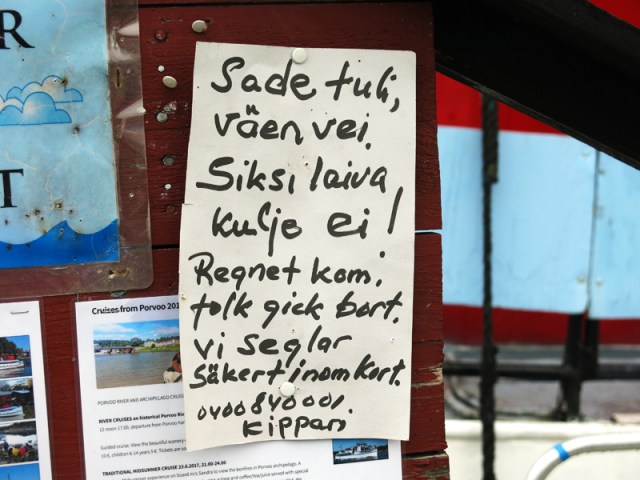 R
T
Sade tuli,
väen vei.
Siksi laiva
kulje ei!
Regnet kom.
folk gick bort.
vi seglar
säkert inom kort.
0400840001.
Kippari
Cruises from Porvoo 201
PORVOO RIVER AND ARCHIPELAGO CRUISE
RIVER CRUISES on historical Porvoo Riv
Guided cruise. View the beautiful scenery
TRADITIONAL MIDSUMMER CRUISE 23.6.2017, 21.00-24.00